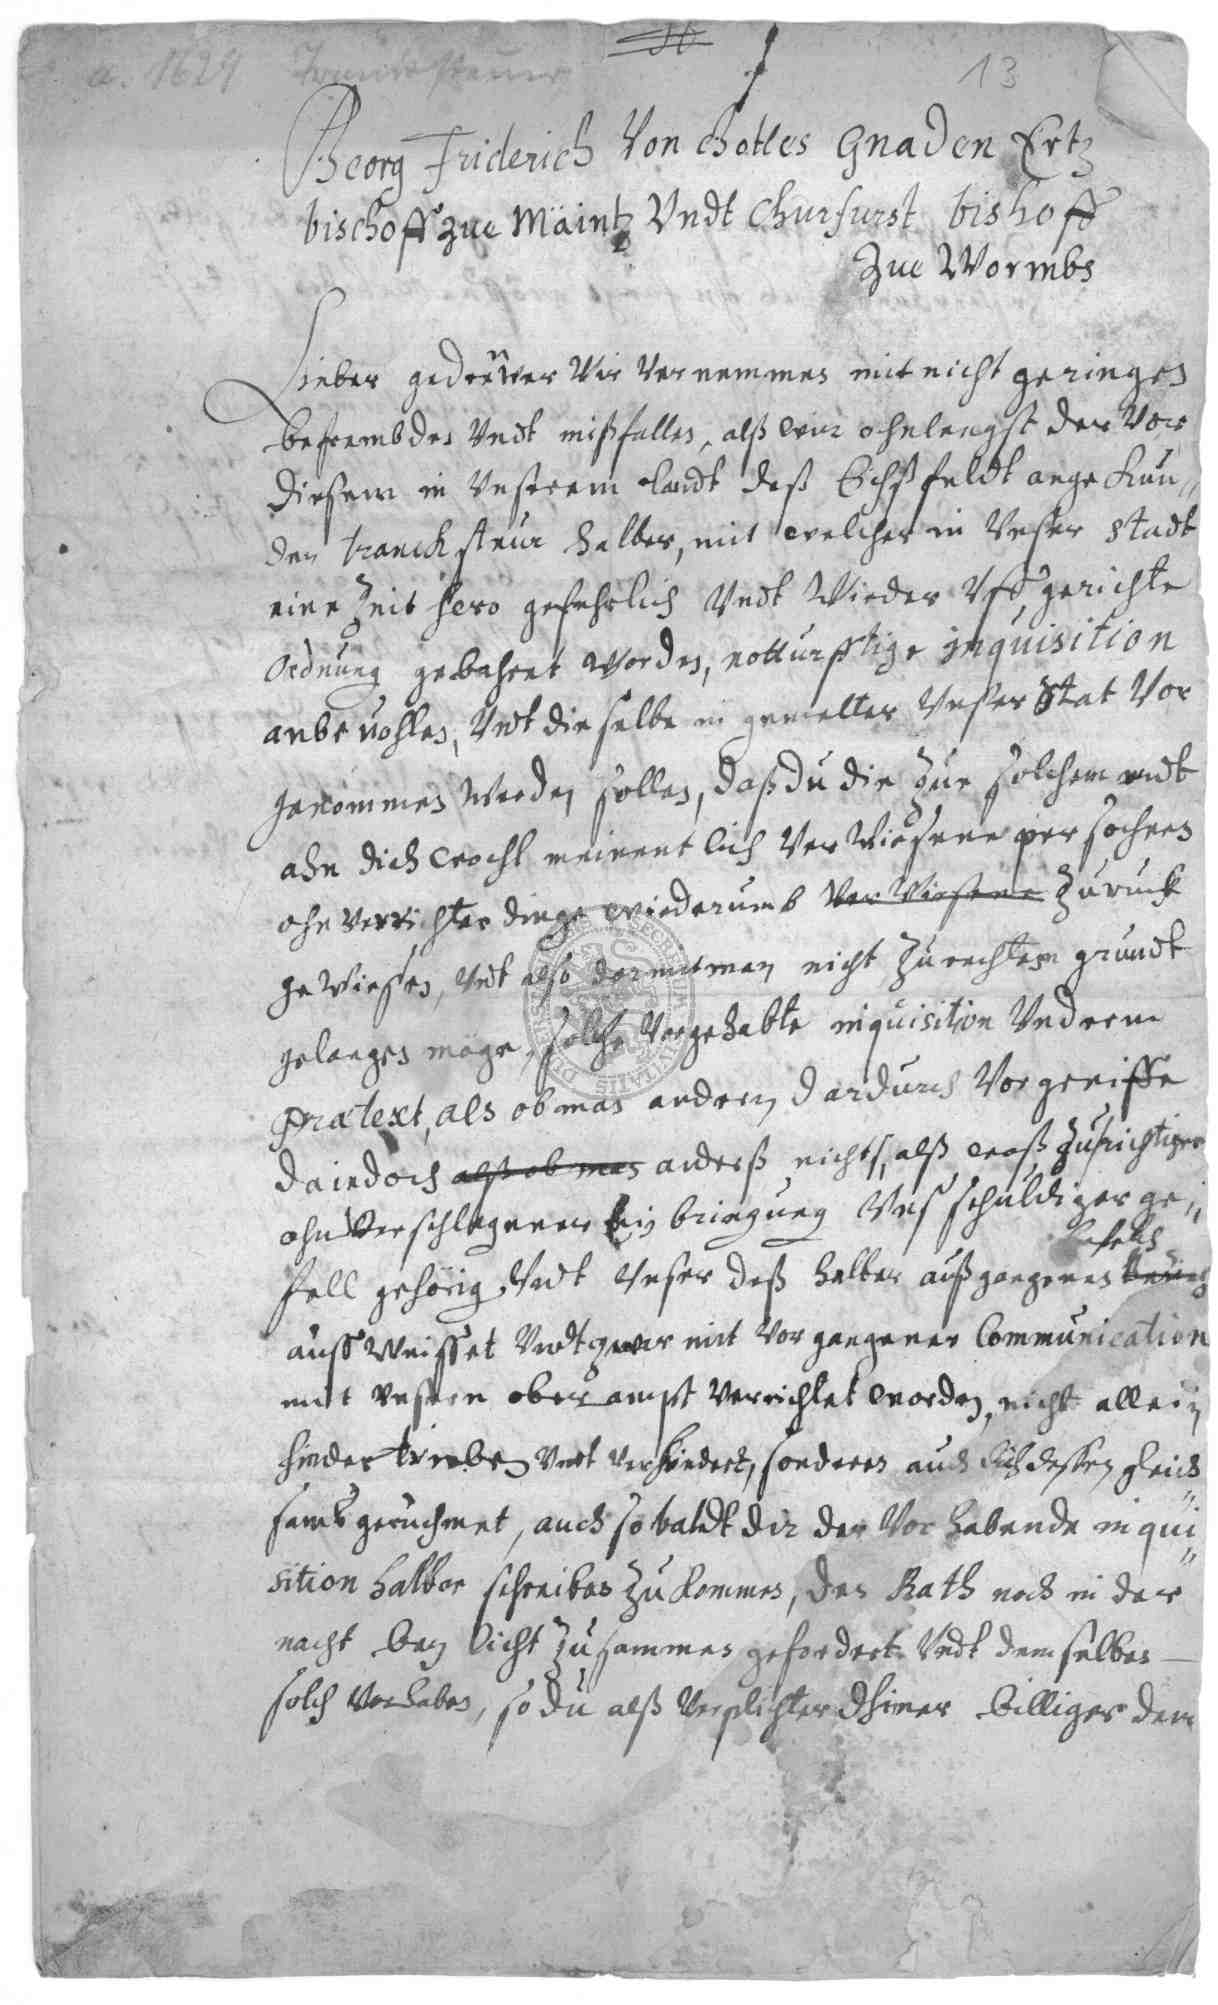 a. 1629 Trancksteuer
13
Georg Friderich Von Gottes Gnaden Ertz
bischoff zue Mäintz Undt Churfurst bishoff
Zue Wormbs
Lieber gedrewer Wir Vernemmen mit nicht geringen
befrembden Undt mißfallen, alß wir ohnlengst der Vor
diesem in Unserem landt deß Eichßfeldt angekun"
den tranck steur halber, mit welcher in Unser Stadt
eine Zeit hero gefehrlich Undt Wieder Uffgerichte
Ordnung gebahret Worden, notturfftige inquisition
anbevohlen, Undt dieselbe in gemelter Unser Stat Vor
genommen Werden sollen, daß du die Zue solchem endt
ahn dich wohl meinentlich Ver Wiesene persohnen
ohn verrichter dinge wiederumb Ver Wiesene Zuruck
ge Wiesen, Undt also darmit man nicht Zu rechtem grundt
gelangen möge, solche Vorgehabte inquisition Underm
prætext, als ob man andern dardurch Vorgreiffe
da iedoch alß ob man anderß nichts, alß waß Zu richtiger
ohn Verschlagener Ein bringung Unß schuldiger ge"
fell gehörig, Undt Unser deß halber außgangenes befelch
auss Weisset Undt zwar mit Vorgangener Communication
mit unserm oberampt Verrichtet worden, nicht allein
hindertrieben Undt verhindert, sonderen auch dich dessen gleich
samb geruhmet, auch so baldt dir der Vorhabende inqui"
sition halber schreiben Zu Kommen, den Rath noch in der
nacht bey licht Zusammen gefordert Undt demselben
solch Vorhaben, so du alß Verplichter dhiner billiger den